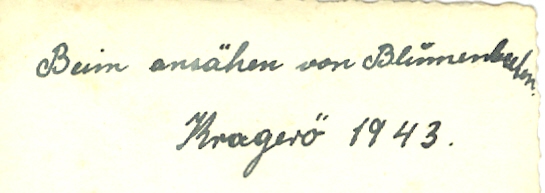 Beim ansähen von Blumenbeeten.
Kragerö 1943.